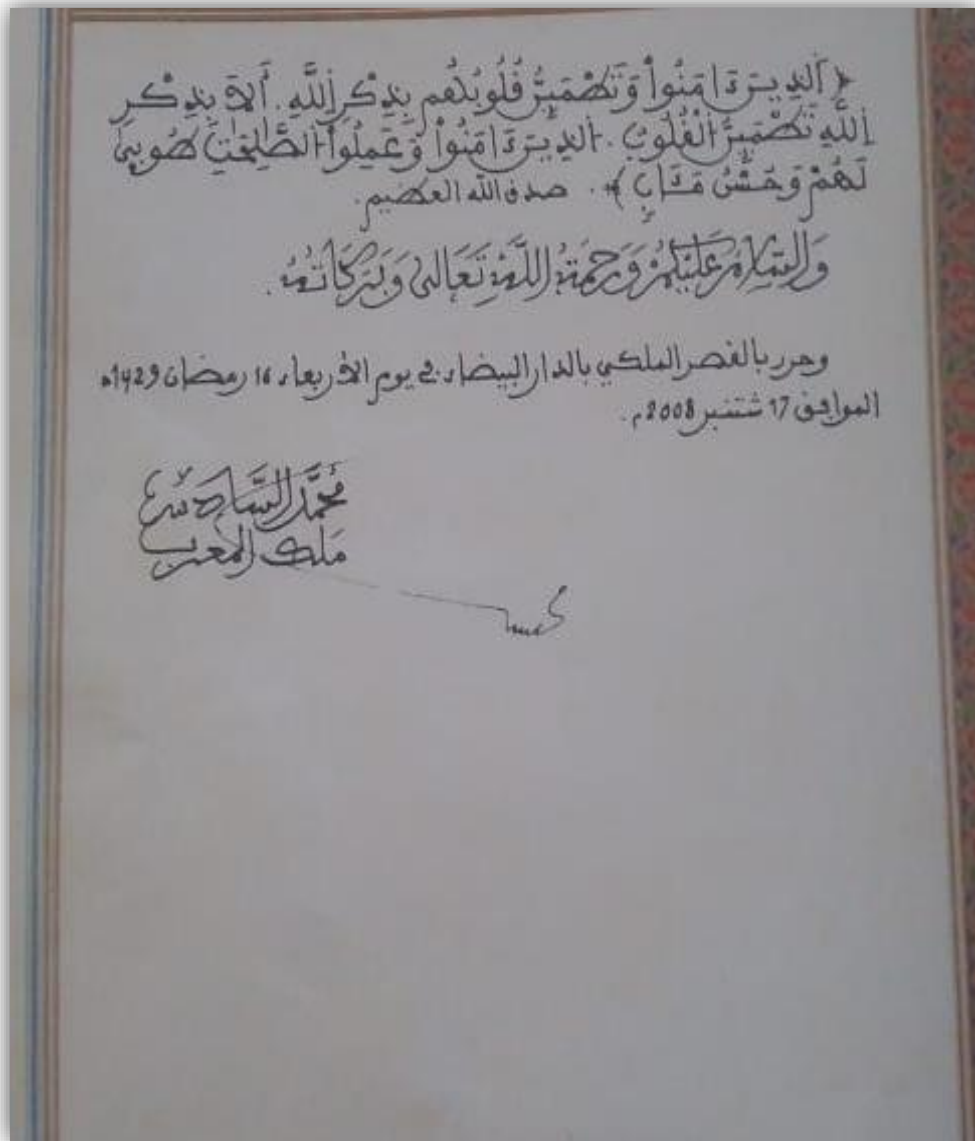 ﴿ اَلذِينَ ءَامَنُواْ وَتَطْمَئِنُّ قُلُوبُهُم بِذِكْرِ اِللَّهِ. أَلاَ بِذِكْرِ
اِللَّهِ تَطْمَئِنُّ اُلْقُلُوبُ. اَلذِينَ ءَامَنُواْ وَعَمِلُواْ اُلصَّٰلِحَٰتِ طُوبىٰ
لَهُمْ وَحُسْنُ مَـَٔابٍ ﴾. صدق الله العظيم.
وَالسَّلاَمُ عَلَيْكُمْ وَرَحْمَةُ اللَّهِ تَعَالَى وَبَرَكَاتُهُ.
وحرر بالقصر الملكي بالدار البيضاء في يوم الأربعاء 16 رمضان 1429ه
الموافق 17 شتنبر 2008م.
مُحَمَّد السَّادس
مَلك المغرب